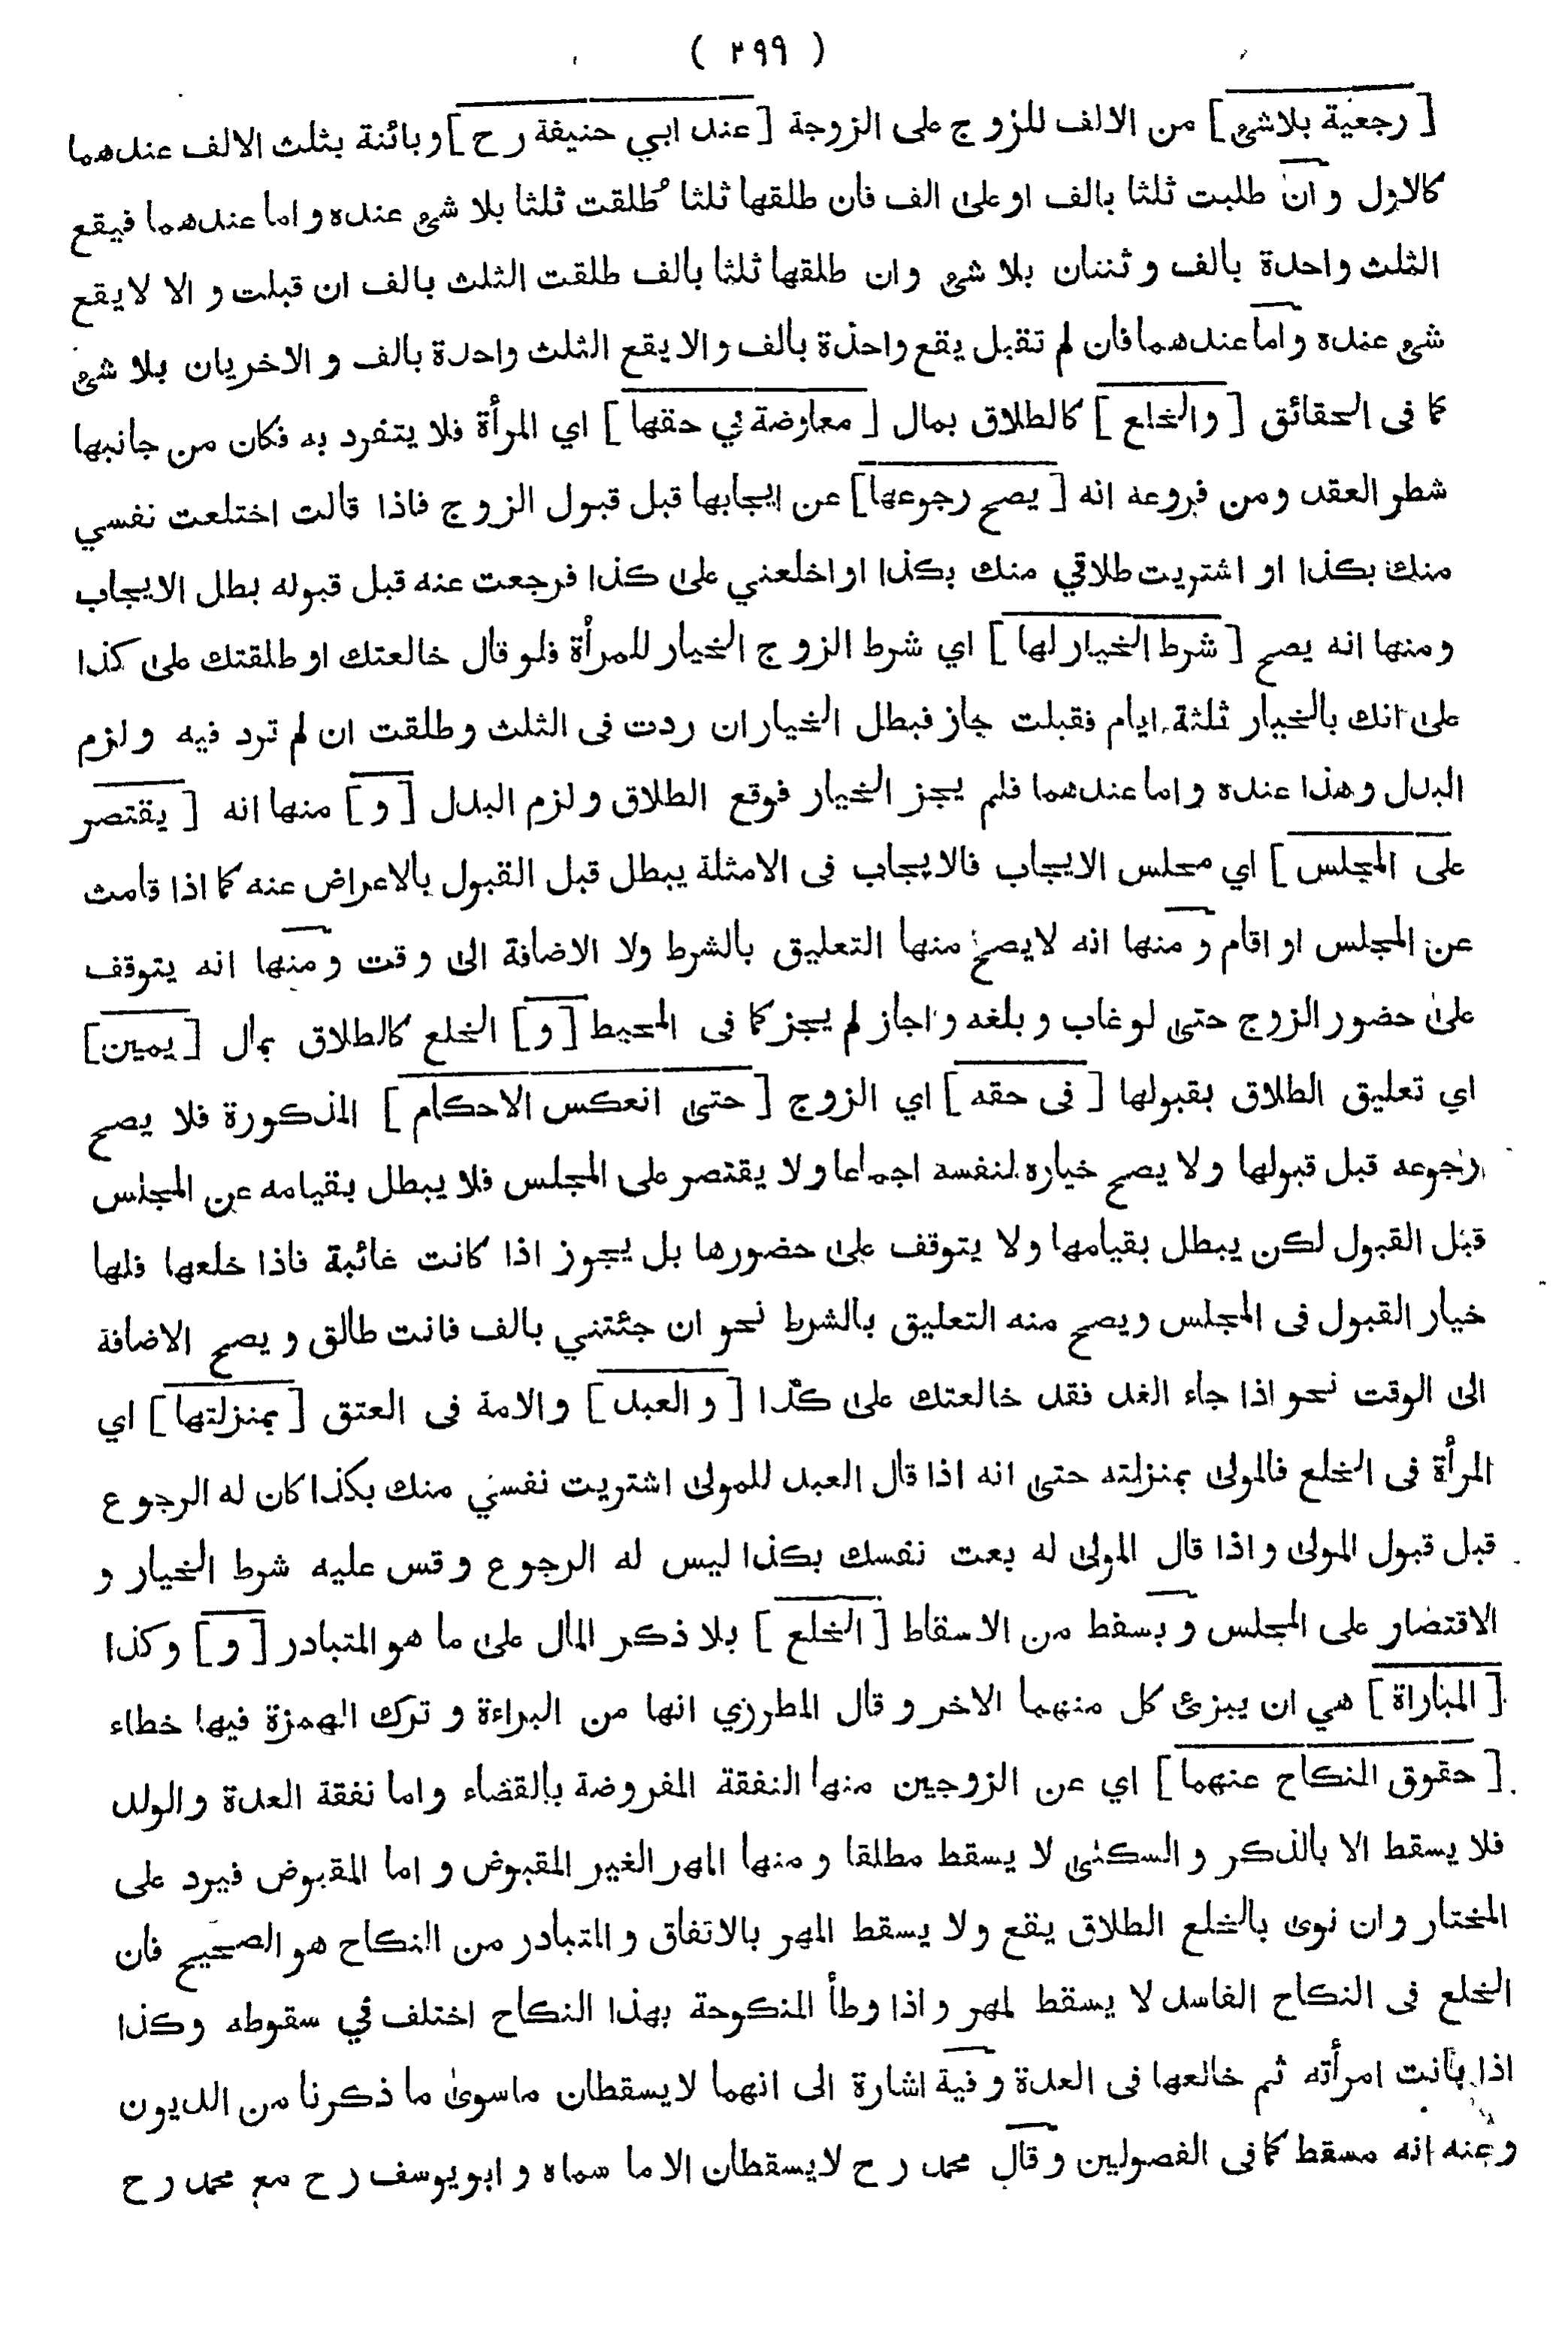 ( ٢٩٩ )
[ رجعية بلاشئ ] من الالف للزوج على الزوجة [ عند ابي حنيفة رح ] وبائنة بثلث الالف عندهما
كالاول و ان طلبت ثلثا بالف او على الف فان طلقها ثلثا طلقت ثلثا بلا شئ عنده و اما عندهما فيقع
الثلث واحدة بالف و ثنتان بلا شئ وان طلقها ثلثا بالف طلقت الثلث بالف ان قبلت و الا لا يقع
شئ عنده واما عندهما فان لم تقبل يقع واحدة بالف والا يقع الثلث واحدة بالف و الاخريان بلا شئ
كما فى الحقائق [ والخلع ] كالطلاق بمال [ معاوضة في حقها ] اي المرأة فلا يتفرد به فكان من جانبها
شطر العقد ومن فروعه انه [ يصح رجوعها ] عن ايجابها قبل قبول الزوج فاذا قالت اختلعت نفسي
منك بكذا او اشتريت طلاقي منك بكذا او اخلعني على كذا فرجعت عنه قبل قبوله بطل الايجاب
ومنها انه يصح [ شرط الخيار لها ] اي شرط الزوج الخيار للمرأة فلو قال خالعتك او طلقتك على كذا
على انك بالخيار ثلثة ايام فقبلت جاز فبطل الخيار ان ردت فى الثلث وطلقت ان لم ترد فيه ولزم
البدل وهذا عنده واما عندهما فلم يجز الخيار فوقع الطلاق ولزم البدل [ و ] منها انه [ يقتصر
على المجلس ] اي مجلس الايجاب فالايجاب فى الامثلة يبطل قبل القبول بالاعراض عنه كما اذا قامت
عن المجلس او اقام ومنها انه لايصح منها التعليق بالشرط ولا الاضافة الى وقت ومنها انه يتوقف
على حضور الزوج حتى لوغاب وبلغه واجاز لم يجز كما فى المحيط [ و ] الخلع كالطلاق بمال [ يمين ]
اي تعليق الطلاق بقبولها [ فى حقه ] اي الزوج [ حتى انعكس الاحكام ] المذكورة فلا يصح
رجوعه قبل قبولها ولا يصح خياره لنفسه اجماعا ولا يقتصر على المجلس فلا يبطل بقيامه عن المجلس
قبل القبول لكن يبطل بقيامها ولا يتوقف على حضورها بل يجوز اذا كانت غائبة فاذا خلعها فلها
خيار القبول فى المجلس ويصح منه التعليق بالشرط نحو ان جئتني بالف فانت طالق ويصح الاضافة
الى الوقت نحو اذا جاء الغد فقد خالعتك على كذا [ و العبد ] والامة فى العتق [ بمنزلتها ] اي
المرأة فى الخلع فالمولى بمنزلته حتى انه اذا قال العبد للمولى اشتريت نفسي منك بكذا كان له الرجوع
قبل قبول المولى واذا قال المولى له بعت نفسك بكذا ليس له الرجوع وقس عليه شرط الخيار و
الاقتصار على المجلس ويسقط من الاسقاط [ الخلع ] بلا ذكر المال على ما هو المتبادر [ و ] وكذا
[ المباراة ] هي ان يبرئ كل منهما الاخر وقال المطرزي انها من البراءة وترك الهمزة فيها خطاء
[ حقوق النكاح عنهما ] اي عن الزوجين منها النفقة المفروضة بالقضاء واما نفقة العدة والولد
فلا يسقط الا بالذكر والسكنى لا يسقط مطلقا ومنها المهر الغير المقبوض و اما المقبوض فيرد على
المختار وان نوى بالخلع الطلاق يقع ولا يسقط المهر بالاتفاق والمتبادر من النكاح هو الصحيح فان
الخلع فى النكاح الفاسد لا يسقط لمهر واذا وطأ المنكوحة بهذا النكاح اختلف في سقوطه وكذا
اذا بانت امرأته ثم خالعها فى العدة وفية اشارة الى انهما لايسقطان ماسوى ما ذكرنا من الديون
وعنه انه مسقط كما فى الفصولين وقال محمد رح لايسقطان الا ما سماه و ابويوسف رح مع محمد رح